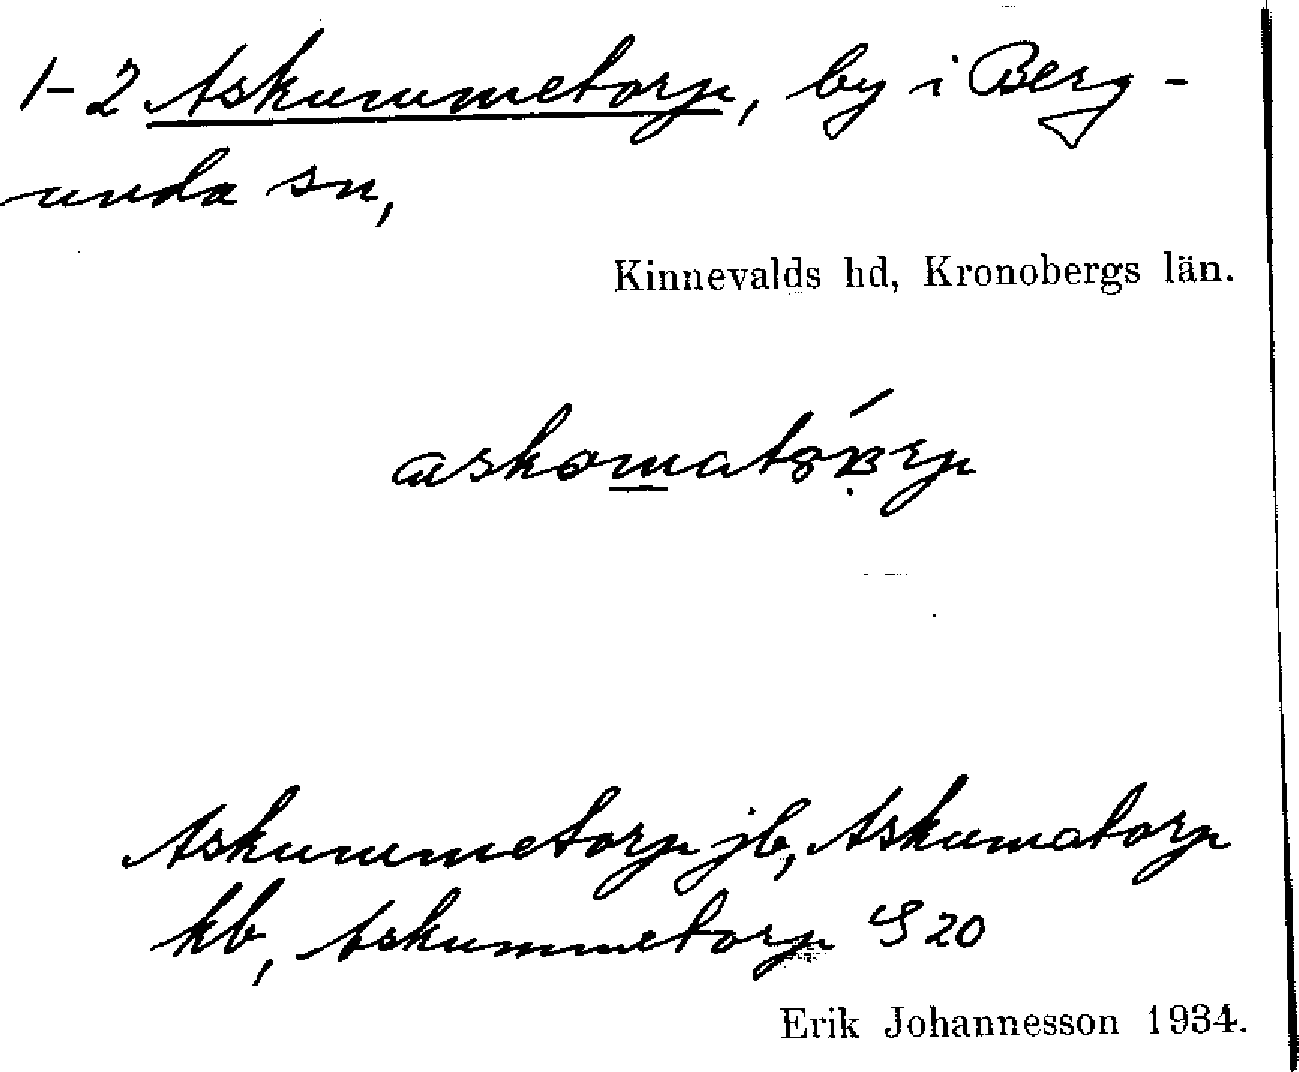 1-2 Askummetorp, by i Berg-
unda sn,
Kinnevalds hd, Kronobergs län.
Askummetorp jb, Askumatorp
kb, Askummetorp S 20
Erik Johannesson 1934.